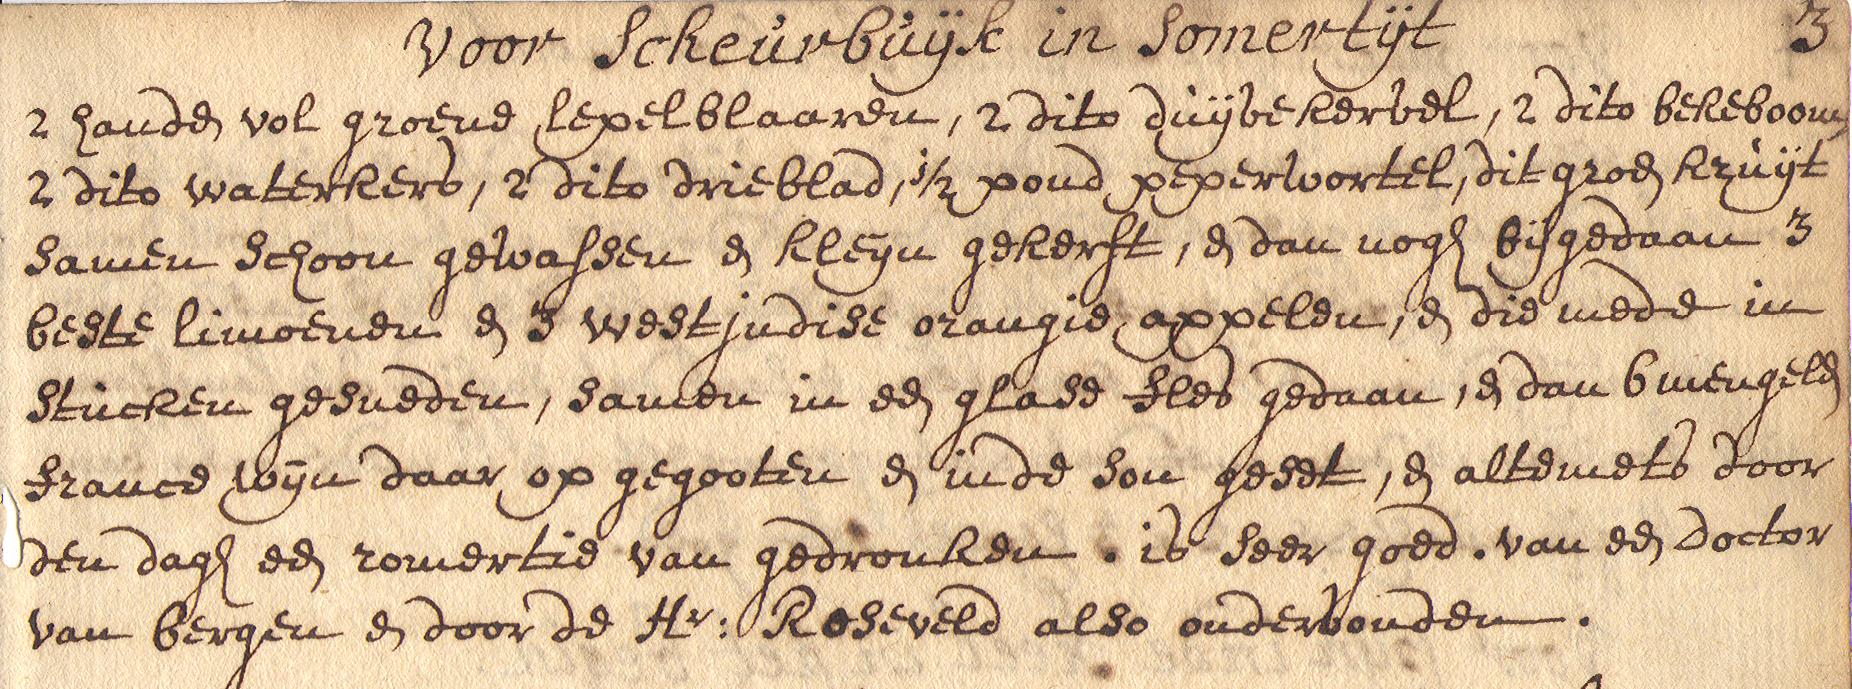 Voor Scheurbuijk in Somertijt 3
2 hande vol groene lepelblaaren, 2 dito duijvekervel, 2 dito bekeboom,
2 dito waterkers, 2 dito drieblad, 1/2 pond peperwortel, dit groen kruijt
samen schoon gewassen en kleijn gekerft, en dan nogh bijgedaan 3
beste limoenen en 3 westjndise orangie appelen, en die mede in
stucken gesneden, samen in een glase fles gedaan, en dan 6 mengelen
france wijn daar op gegooten en inde son geset, en altemets door
den dagh een romertie van gedronken. is seer goed. van een Doctor
van bergen en door de Hr: Roseveld also ondervonden.